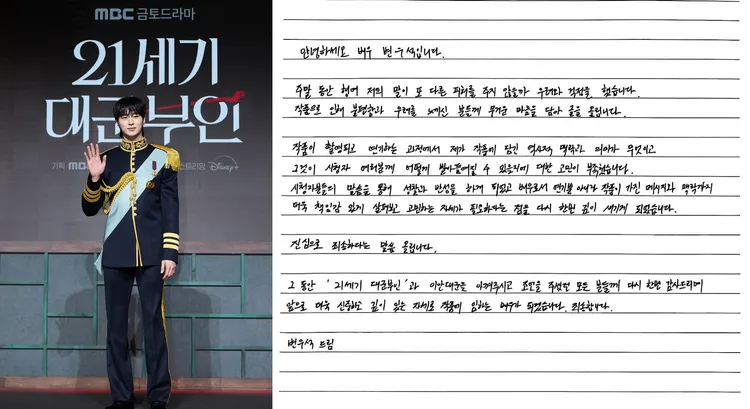 MBC 금토드라마
21세기
대군부인
기획 MBC
스트리밍 Disney+
안녕하세요 배우 변우석입니다.
주말 동안 혹여 저의 말이 또 다른 피해를 주지 않을까 우려와 걱정을 했습니다.
작품으로 인해 불편함과 우려를 느끼신 분들께 무거운 마음을 담아 글을 올립니다.
작품이 촬영되고 연기하는 과정에서 제가 작품에 담긴 역사적 맥락과 의미가 무엇이고
그것이 시청자 여러분께 어떻게 받아들여질 수 있을지에 대한 고민이 부족했습니다.
시청자분들의 말씀을 통해 성찰과 반성을 하게 되었고 배우로서 연기뿐 아니라 작품이 가진 메시지와 맥락까지
더욱 책임감 있게 살펴보고 고민하는 자세가 필요하다는 점을 다시 한번 깊이 새기게 되었습니다.
진심으로 죄송하다는 말씀 올립니다.
그 동안 '21세기 대군부인'과 이안대군을 아껴주시고 조언을 주셨던 모든 분들께 다시 한번 감사드리며
앞으로 더욱 신중하고 깊이 있는 자세로 작품에 임하는 배우가 되겠습니다. 죄송합니다.
변우석 드림